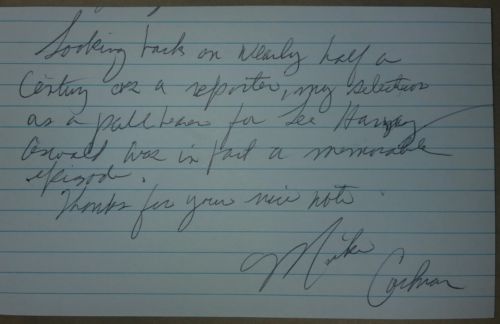 Looking back on nearly half a
Century as a reporter, my selection
as a pallbearer for Lee Harvey
Oswald was in fact a memorable
episode.
Thanks for your nice note.
Mike
Cochran